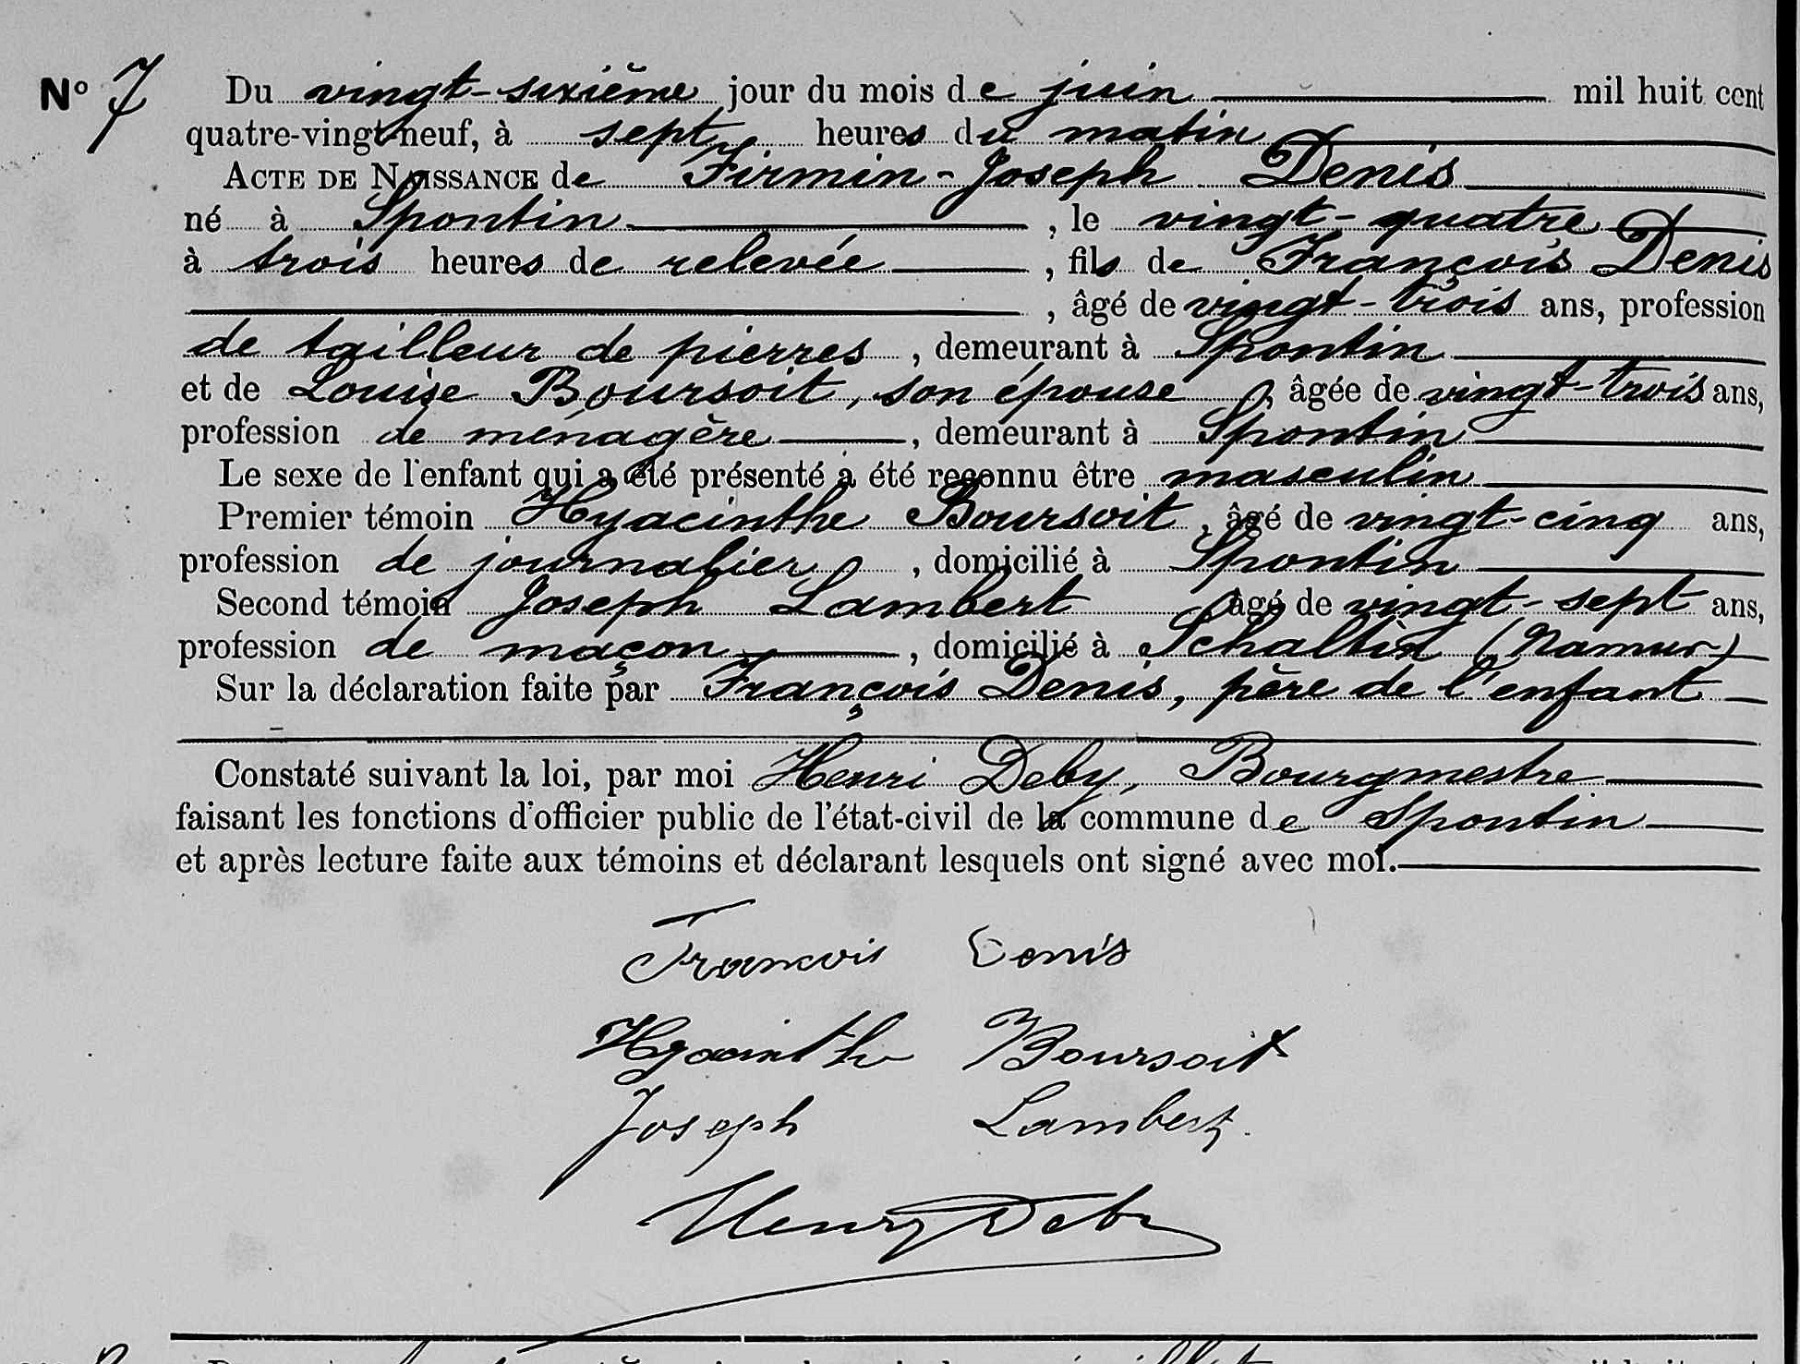 N° 7 Du vingt-sixième jour du mois de juin mil huit cent
quatre-vingt-neuf, à sept heures du matin
ACTE DE NAISSANCE de Firmin-Joseph Denis
né à Spontin, le vingt-quatre
à trois heures de relevée, fils de François Denis
, âgé de vingt-trois ans, profession
de tailleur de pierres, demeurant à Spontin
et de Louise Boursoit, son épouse, âgée de vingt-trois ans,
profession de ménagère, demeurant à Spontin
Le sexe de l'enfant qui a été présenté a été reconnu être masculin
Premier témoin Hyacinthe Boursoit, âgé de vingt-cinq ans,
profession de journalier, domicilié à Spontin
Second témoin Joseph Lambert âgé de vingt-sept ans,
profession de maçon, domicilié à Schaltin (Namur)
Sur la déclaration faite par François Denis, père de l'enfant
Constaté suivant la loi, par moi Henri Deby, Bourgmestre
faisant les fonctions d'officier public de l'état-civil de la commune de Spontin
et après lecture faite aux témoins et déclarant lesquels ont signé avec moi.
Francois Denis
Hyacinthe Boursoit
Joseph Lambert.
Henry Deby